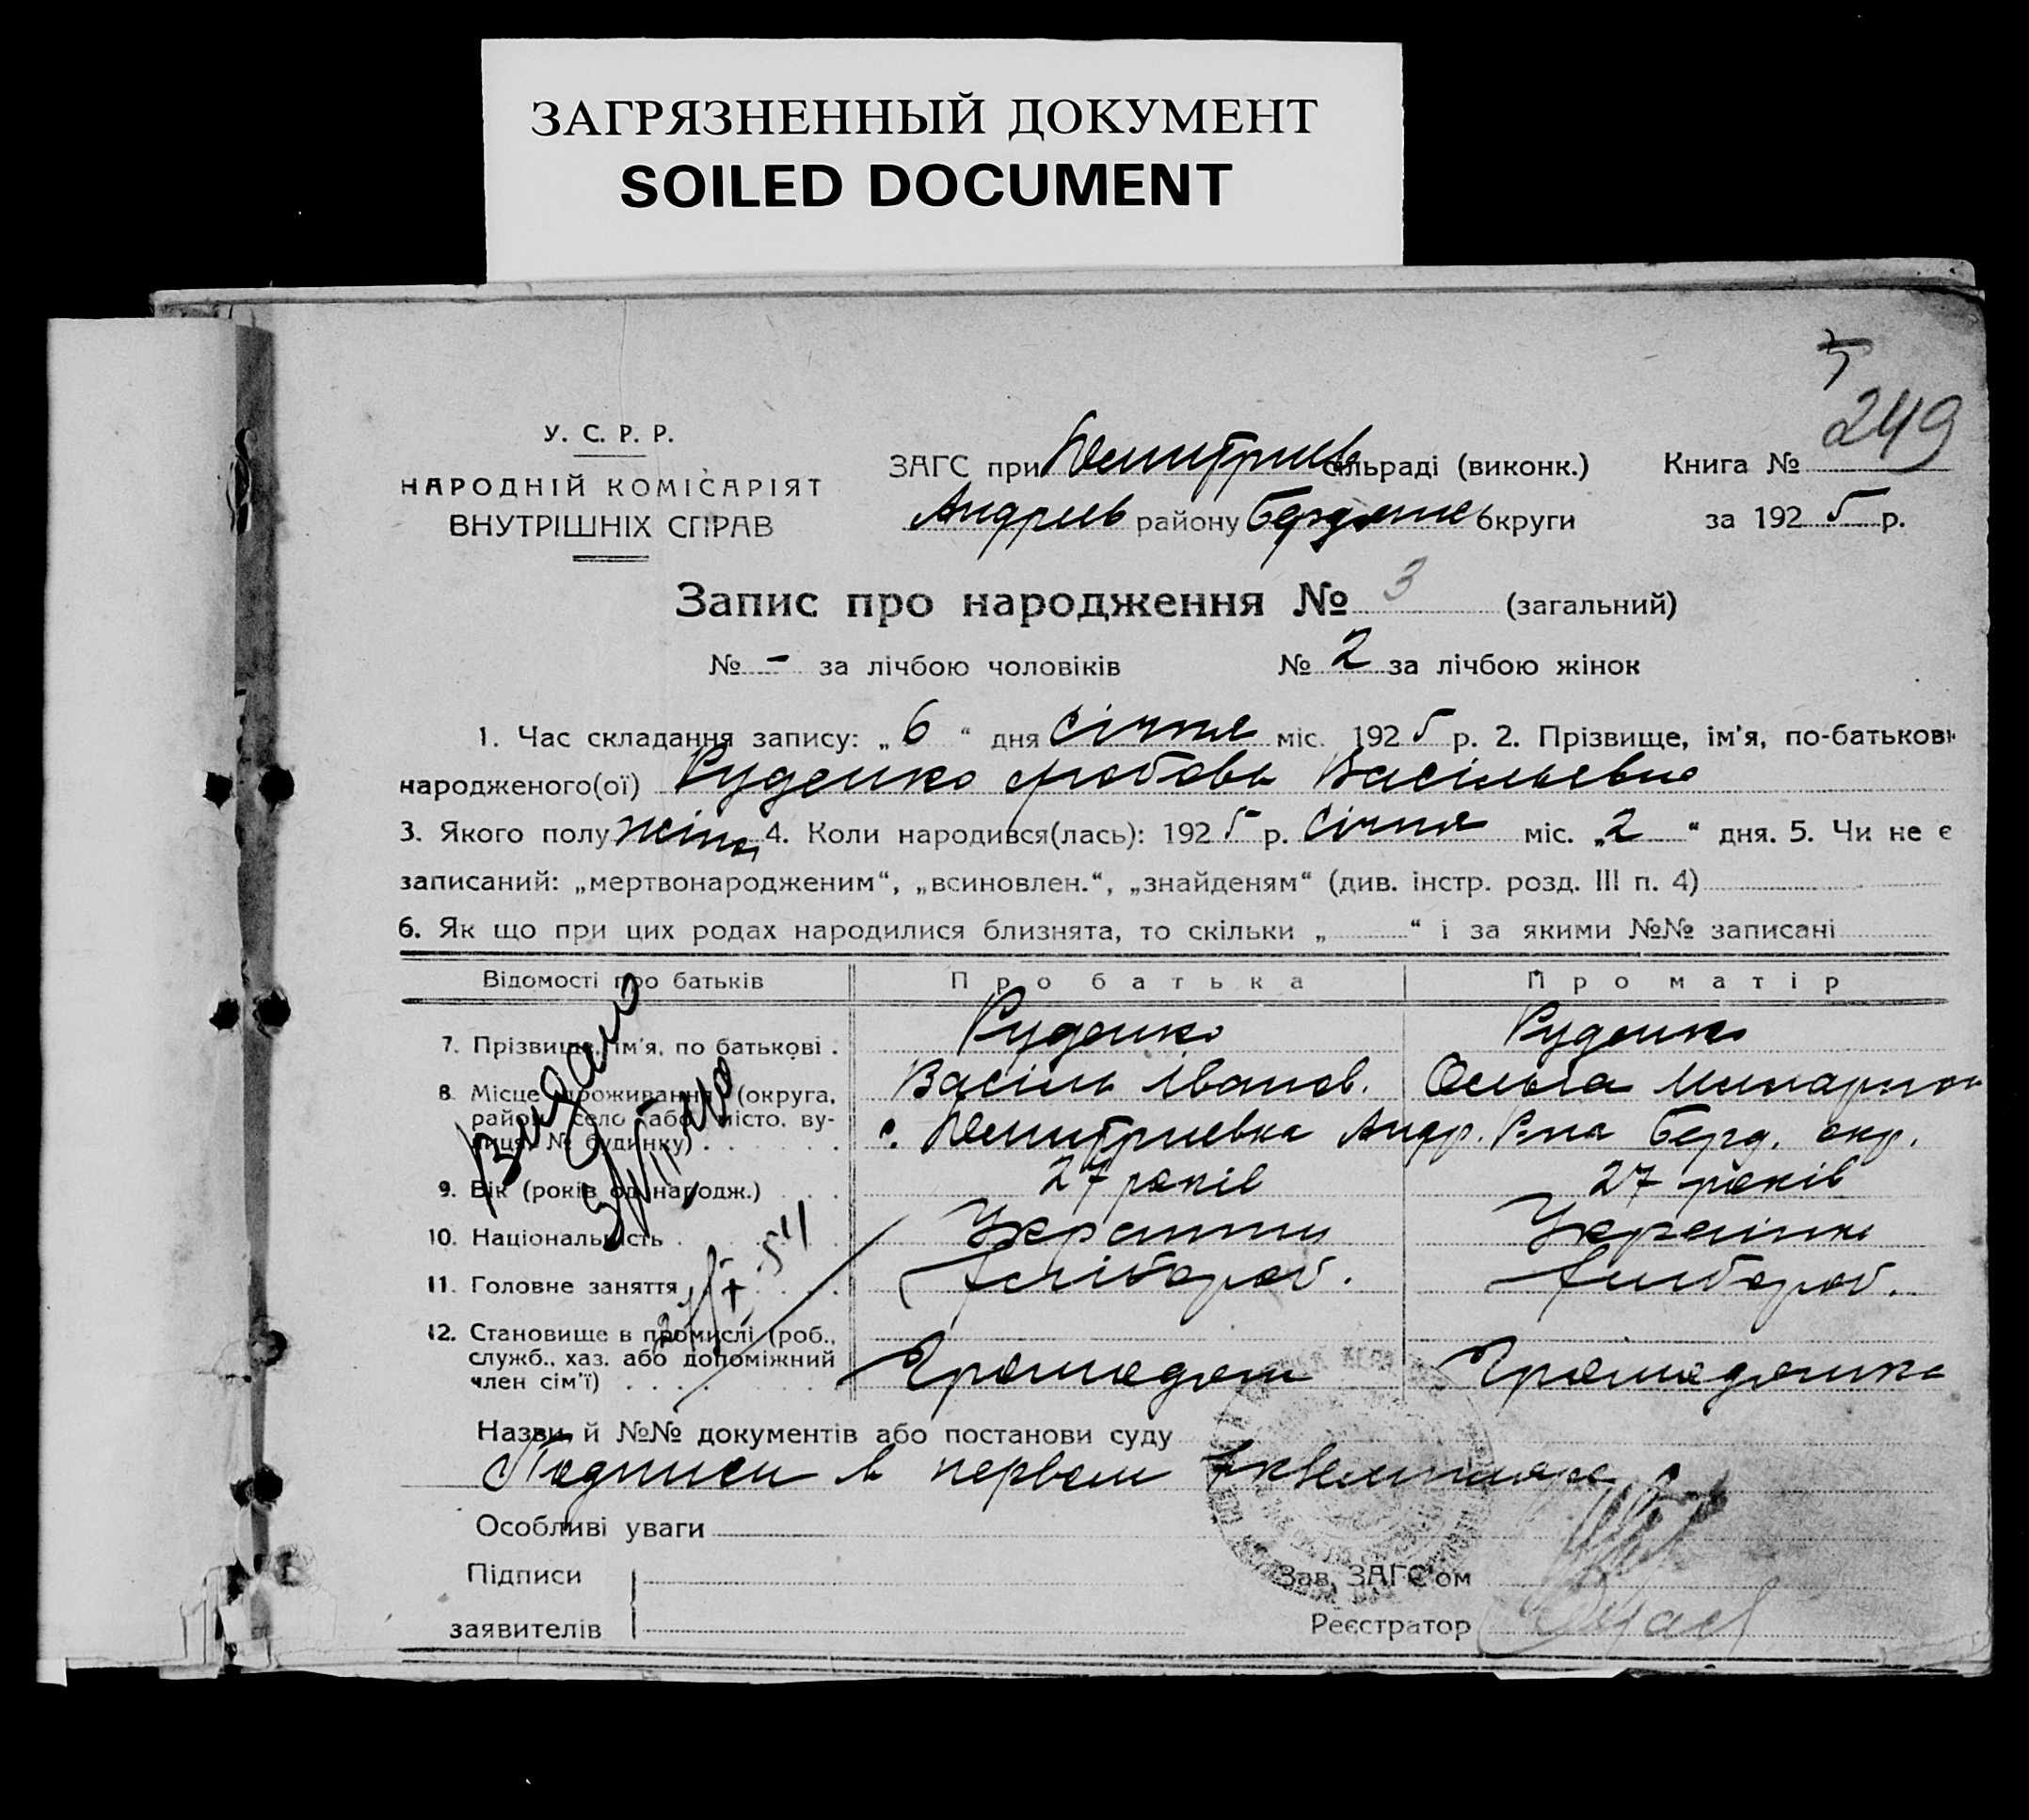 ЗАГРЯЗНЕННЫЙ ДОКУМЕНТ
SOILED DOCUMENT
249
У. С. Р. Р.
НАРОДНІЙ КОМІСАРІЯТ
ВНУТРІШНІХ СПРАВ
ЗАГС при Демитриев сільраді (виконк.)
Андреев району Бердянс округи
Книга №
за 1925 р.
Запис про народження № 3 (загальний)
№ - за лічбою чоловіків № 2 за лічбою жінок
1. Час складання запису: „6“ дня Січня міс. 1925 р. 2. Прізвище, ім'я, по-батькові
народженого(ої) Руденко Любовь Васільевна
3. Якого полу жіноч 4. Коли народився(лась): 1925 р. Січня міс. „2“ дня. 5. Чи не є
записаний: „мертвонародженим“, „всиновлен.“, „знайденям“ (див. інстр. розд. III п. 4)
6. Як що при цих родах народилися близнята, то скільки „ “ і за якими №№ записані
Відомості про батьків Про батька Про матір
7. Прізвище, ім'я, по батькові . Руденко Руденко
Васіль Іванов. Ольга
8. Місце проживання (округа,
район, село (або місто, ву-
лиця, № будинку) с. Демитриевка Андр. Р-на Берд. окр.
9. Вік (років од народж.) 27 років 27 років
10. Національність Українец Українка
11. Головне заняття Хлібороб. Хлібороб.
12. Становище в промислі (роб.,
служб., хаз. або допоміжний
член сім'ї) Громадян Громадянка
Видано
Назви й №№ документів або постанови суду
Подписи в первом Экземпляре
Особливі уваги
Підписи
заявителів
Зав. ЗАГС'ом
Реєстратор